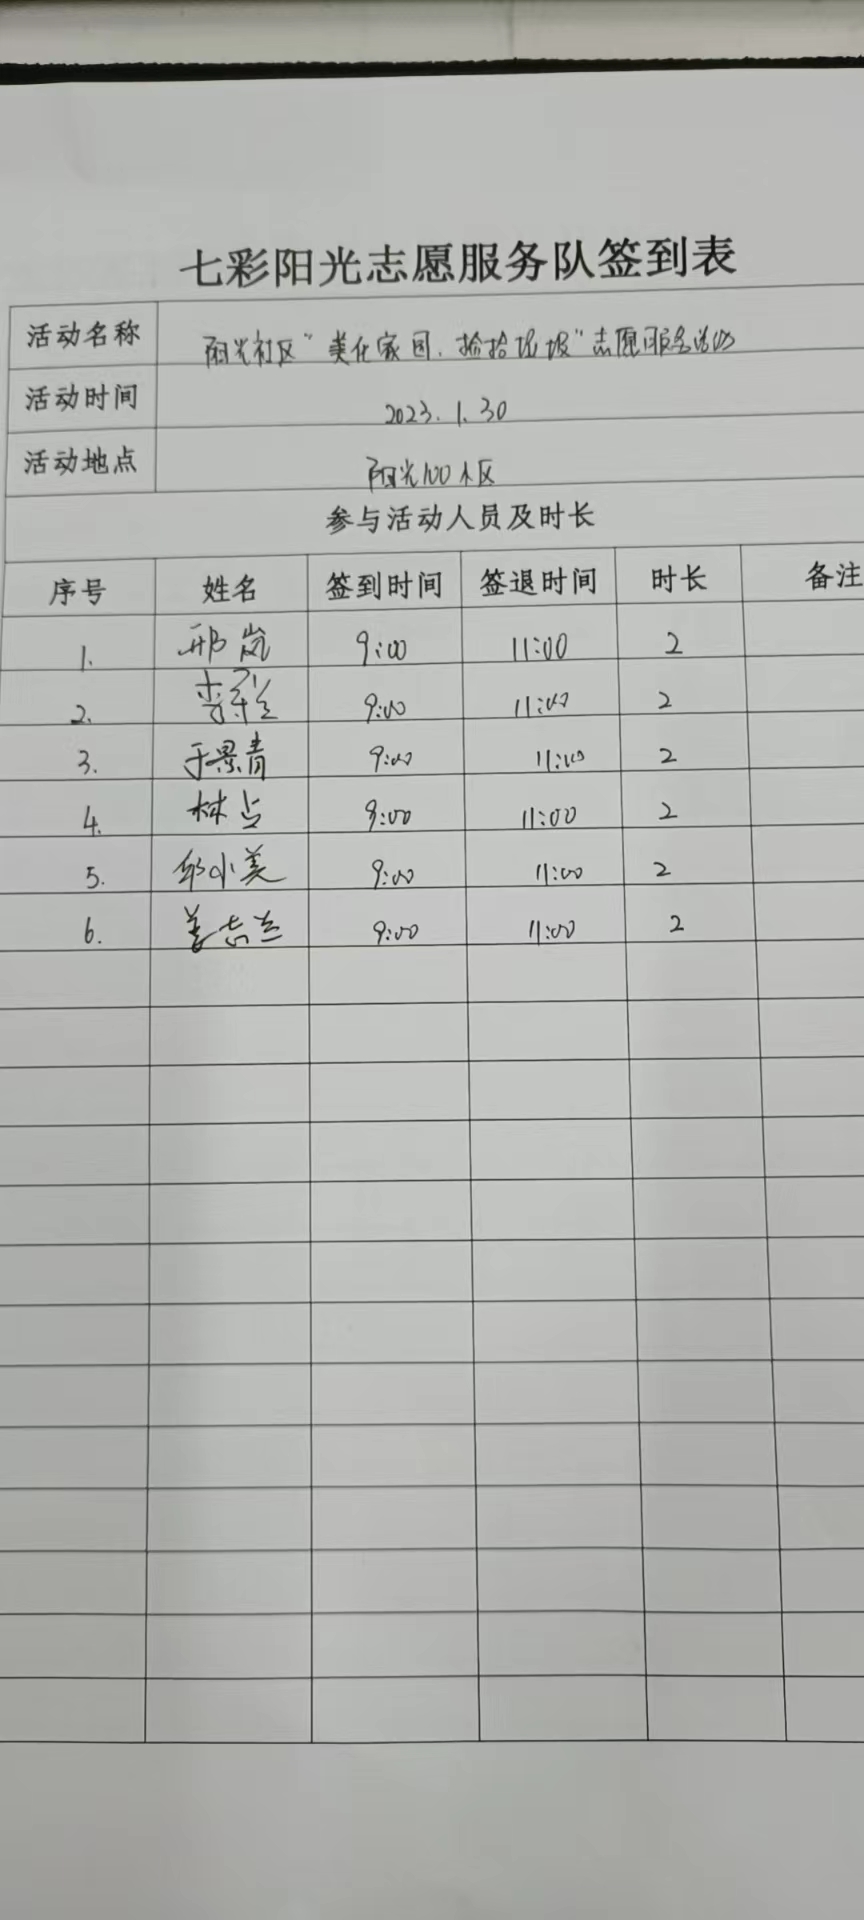 七彩阳光志愿服务队签到表
活动名称 阳光社区“美化家园、捡拾垃圾”志愿服务活动
活动时间 2023.1.30
活动地点 阳光100小区
参与活动人员及时长
序号 姓名 签到时间 签退时间 时长 备注
1. 邢岚 9:00 11:00 2
2. 李 9:00 11:00 2
3. 于景青 9:00 11:00 2
4. 林占 9:00 11:00 2
5. 邱小美 9:00 11:00 2
6. 姜志兰 9:00 11:00 2